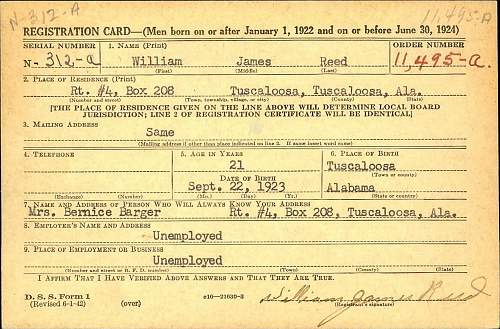 N-312-A 11,495-A
REGISTRATION CARD—(Men born on or after January 1, 1922 and on or before June 30, 1924)
SERIAL NUMBER 1. NAME (Print) ORDER NUMBER
N- 312-a William James Reed 11,495-a.
(First) (Middle) (Last)
2. PLACE OF RESIDENCE (Print)
Rt. #4, Box 208 Tuscaloosa, Tuscaloosa, Ala.
(Number and street) (Town, township, village, or city) (County) (State)
[THE PLACE OF RESIDENCE GIVEN ON THE LINE ABOVE WILL DETERMINE LOCAL BOARD
JURISDICTION; LINE 2 OF REGISTRATION CERTIFICATE WILL BE IDENTICAL]
3. MAILING ADDRESS
Same
(Mailing address if other than place indicated on line 2. If same insert word same)
4. TELEPHONE 5. AGE IN YEARS 6. PLACE OF BIRTH
21 Tuscaloosa
DATE OF BIRTH (Town or county)
Sept. 22, 1923 Alabama
(Exchange) (Number) (Mo.) (Day) (Yr.) (State or country)
7. NAME AND ADDRESS OF PERSON WHO WILL ALWAYS KNOW YOUR ADDRESS
Mrs. Bernice Barger Rt. #4, Box 208, Tuscaloosa, Ala.
8. EMPLOYER'S NAME AND ADDRESS
Unemployed
9. PLACE OF EMPLOYMENT OR BUSINESS
Unemployed
(Number and street or R. F. D. number) (Town) (County) (State)
I AFFIRM THAT I HAVE VERIFIED ABOVE ANSWERS AND THAT THEY ARE TRUE.
D. S. S. Form 1
(Revised 6-1-42) (over) c16—21630-2 William James Reed
(Registrant's signature)